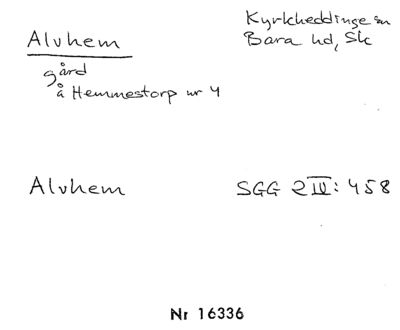 Alvhem
gård
å Hemmestorp nr 4
Kyrkheddinge sn
Bara hd, Sk
Alvhem
SGG 2 IV: 458
Nr 16336